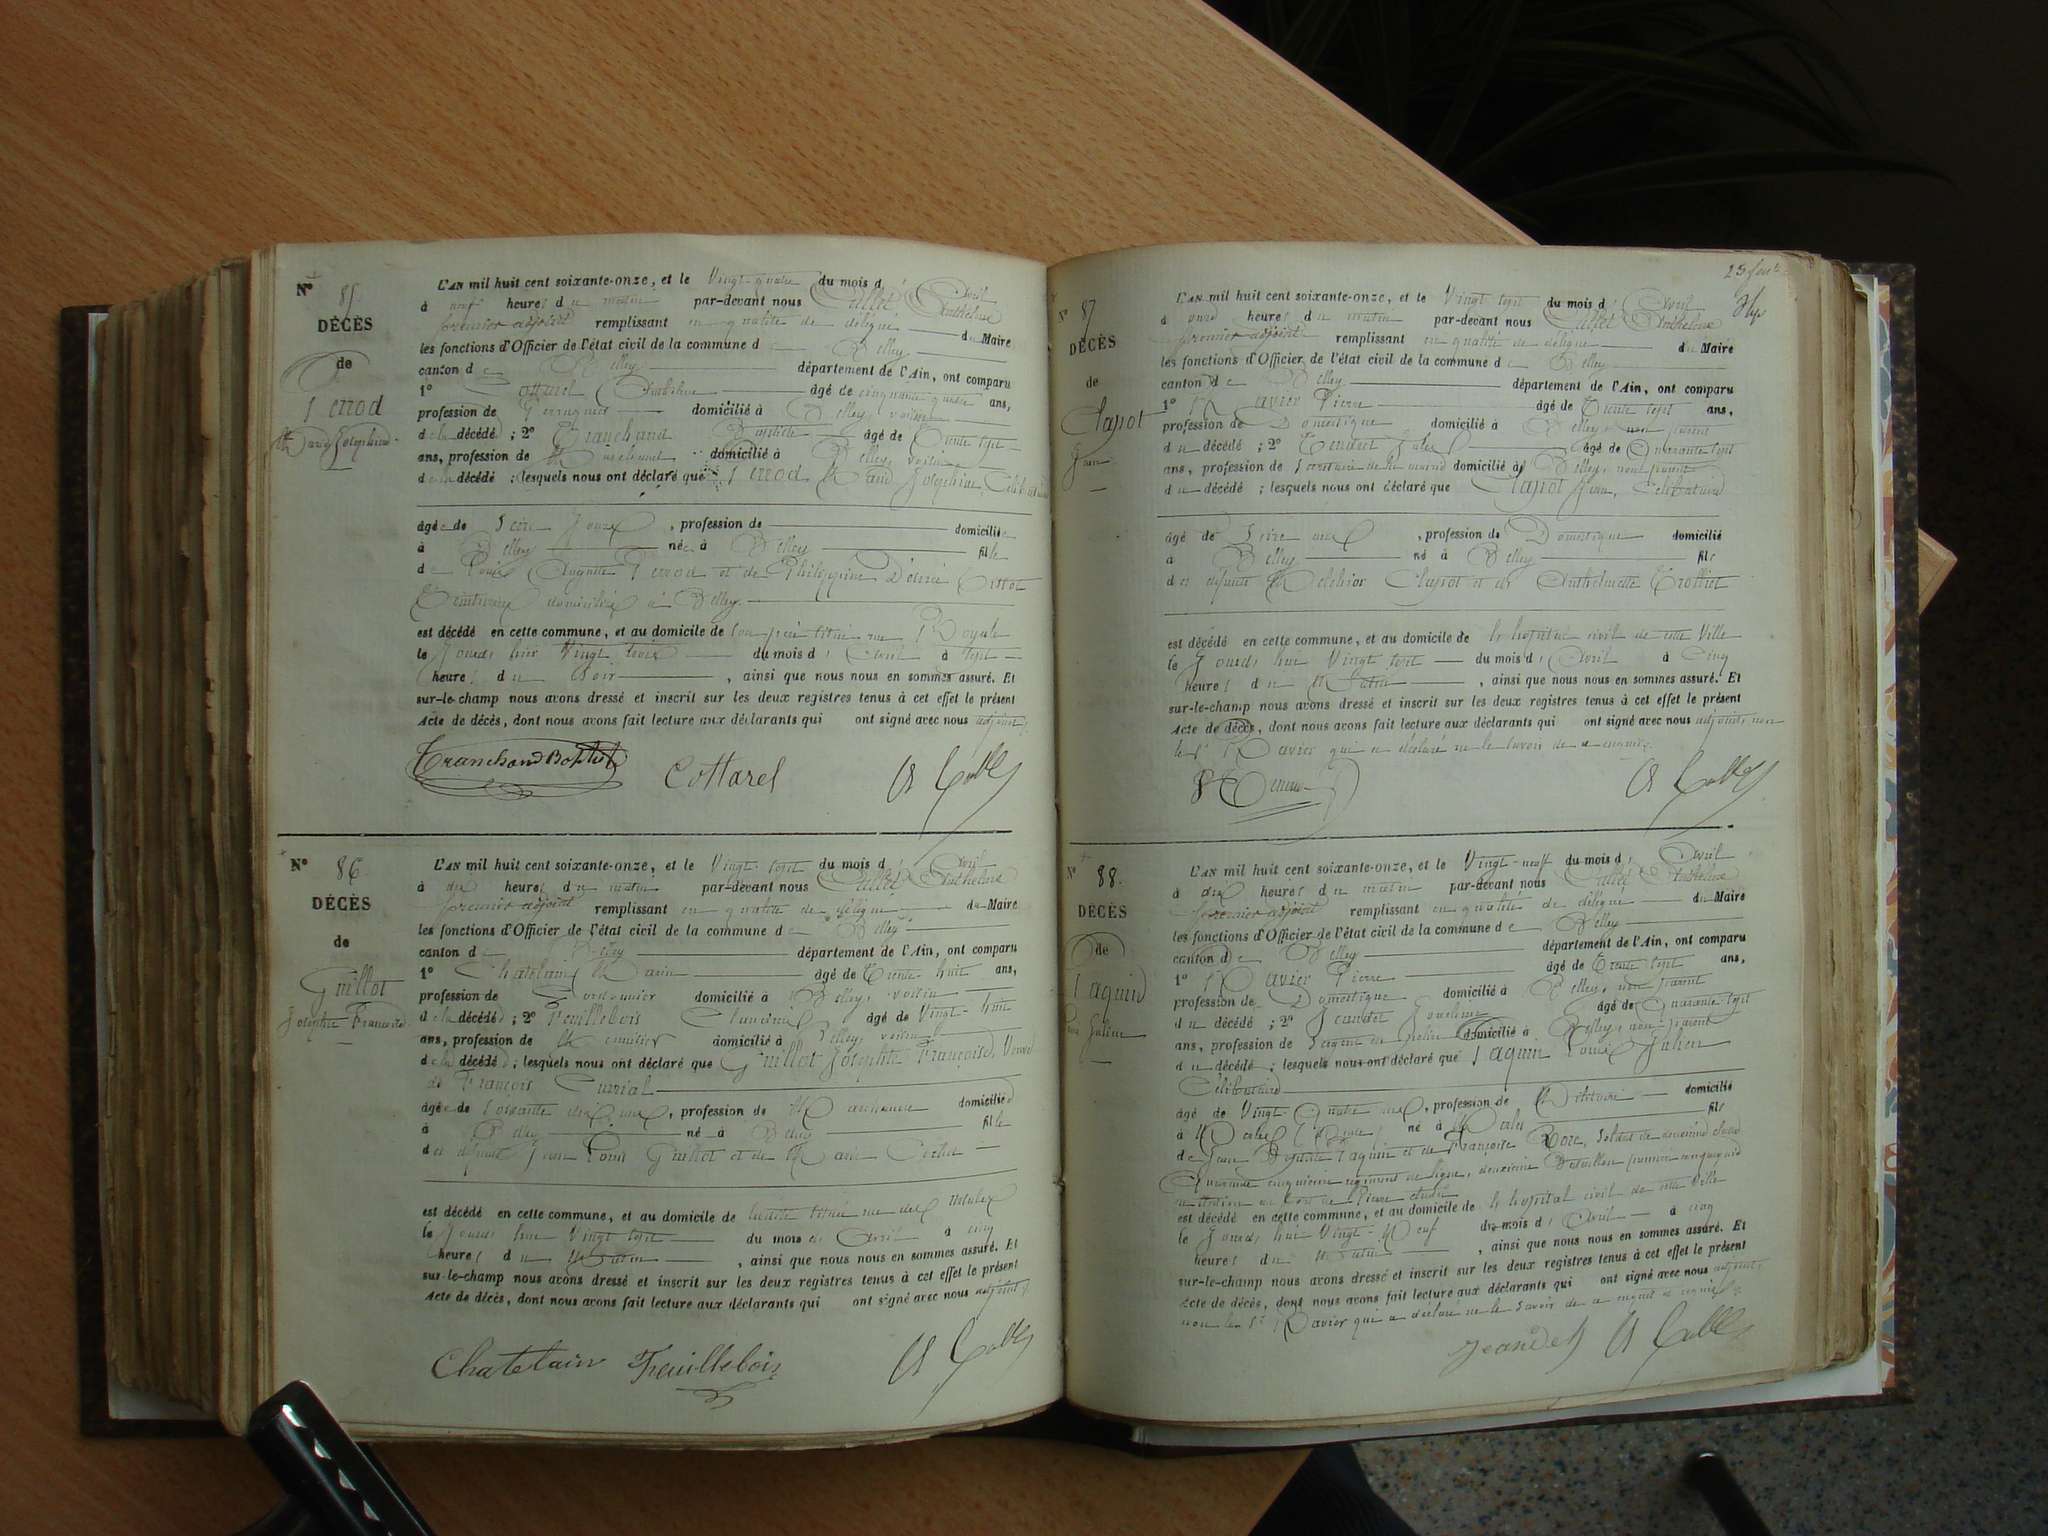 Nº 85
DÉCÈS
de
L'AN mil huit cent soixante-onze, et le Vingt-quatre du mois d'Avril
à neuf heures du matin par-devant nous Anthelme
premier adjoint remplissant en qualité de délégué du Maire
les fonctions d'Officier de l'état civil de la commune de Belley
canton de Belley département de l'Ain, ont comparu
1º Cottarel Anthelme âgé de cinquante quatre ans,
profession de domicilié à Belley, voisin
de la décédée ; 2º Tranchand Baptiste âgé de trente sept
ans, profession de domicilié à Belley, voisin
de la décédée ; lesquels nous ont déclaré que Marie Joséphine, Célibataire
âgée de Seize Jours, profession de domiciliée
à Belley née à Belley fille
de Louis Auguste et de Philippine
domiciliés à Belley
est décédé en cette commune, et au domicile de son père située rue Royale
le Jourd'hier Vingt trois du mois d'Avril à sept
heures du Soir, ainsi que nous nous en sommes assuré. Et
sur-le-champ nous avons dressé et inscrit sur les deux registres tenus à cet effet le présent
Acte de décès, dont nous avons fait lecture aux déclarants qui ont signé avec nous adjoint.
Tranchand Baptiste Cottarel
Nº 86
DÉCÈS
de
Guillot
Josephte Françoise
L'AN mil huit cent soixante-onze, et le Vingt-sept du mois d'Avril
à dix heures du matin par-devant nous Anthelme
premier adjoint remplissant en qualité de délégué du Maire
les fonctions d'Officier de l'état civil de la commune de Belley
canton de Belley département de l'Ain, ont comparu
1º Chatelain Marin âgé de trente-huit ans,
profession de Cordonnier domicilié à Belley, voisin
de la décédée ; 2º Feuillebois âgé de Vingt-huit
ans, profession de domicilié à Belley, voisin
de la décédée ; lesquels nous ont déclaré que Guillot Josephte Françoise, Veuve
de François
âgée de Soixante dix neuf, profession de domiciliée
à Belley née à Belley fille
des défunts Jean Louis Guillot et de Marie
est décédé en cette commune, et au domicile de située rue des
le Jourd'hui Vingt sept du mois d'Avril à cinq
heures du Matin, ainsi que nous nous en sommes assuré. Et
sur-le-champ nous avons dressé et inscrit sur les deux registres tenus à cet effet le présent
Acte de décès, dont nous avons fait lecture aux déclarants qui ont signé avec nous adjoint.
Chatelain Feuillebois
Nº 87
DÉCÈS
de
Clapot
Jean
L'AN mil huit cent soixante-onze, et le Vingt sept du mois d'Avril
à onze heures du matin par-devant nous Anthelme
premier adjoint remplissant en qualité de délégué du Maire
les fonctions d'Officier de l'état civil de la commune de Belley
canton de Belley département de l'Ain, ont comparu
1º Ravier Pierre âgé de trente sept ans,
profession de Domestique domicilié à Belley, non parent
du décédé ; 2º âgé de Quarante sept
ans, profession de Secrétaire de la mairie domicilié à Belley, non parent
du décédé ; lesquels nous ont déclaré que Clapot Jean, Célibataire
âgé de, profession de Domestique domicilié
à Belley né à Belley fils
des défunts Melchior Clapot et de Anthelmette Trolliet
est décédé en cette commune, et au domicile de l'hospice civil de cette Ville
le Jourd'hui Vingt sept du mois d'Avril à Cinq
heures du Matin, ainsi que nous nous en sommes assuré. Et
sur-le-champ nous avons dressé et inscrit sur les deux registres tenus à cet effet le présent
Acte de décès, dont nous avons fait lecture aux déclarants qui ont signé avec nous adjoint, non
le Sr Ravier qui a déclaré ne le savoir de ce enquis.
Nº 88.
DÉCÈS
de
Jaquin
Louis Julien
L'AN mil huit cent soixante-onze, et le Vingt-neuf du mois d'Avril
à dix heures du matin par-devant nous Anthelme
premier adjoint remplissant en qualité de délégué du Maire
les fonctions d'Officier de l'état civil de la commune de Belley
canton de Belley département de l'Ain, ont comparu
1º Ravier Pierre âgé de trente sept ans,
profession de Domestique domicilié à Belley, non parent
du décédé ; 2º Jeandet âgé de Quarante sept
ans, profession de Sergent de police domicilié à Belley, non parent
du décédé ; lesquels nous ont déclaré que Jaquin Louis Julien
Célibataire
âgé de Vingt Quatre ans, profession de Militaire domicilié
à né à fils
de Jean Baptiste Jaquin et de Françoise soldat de deuxième classe
Quarante cinquième régiment de ligne, deuxième Bataillon première compagnie
est décédé en cette commune, et au domicile de l'hôpital civil de cette Ville
le Jourd'hui Vingt-Neuf du mois d'Avril à cinq
heures du Matin, ainsi que nous nous en sommes assuré. Et
sur-le-champ nous avons dressé et inscrit sur les deux registres tenus à cet effet le présent
Acte de décès, dont nous avons fait lecture aux déclarants qui ont signé avec nous adjoint,
non le Sr Ravier qui a déclaré ne le savoir de ce enquis
Jeandet